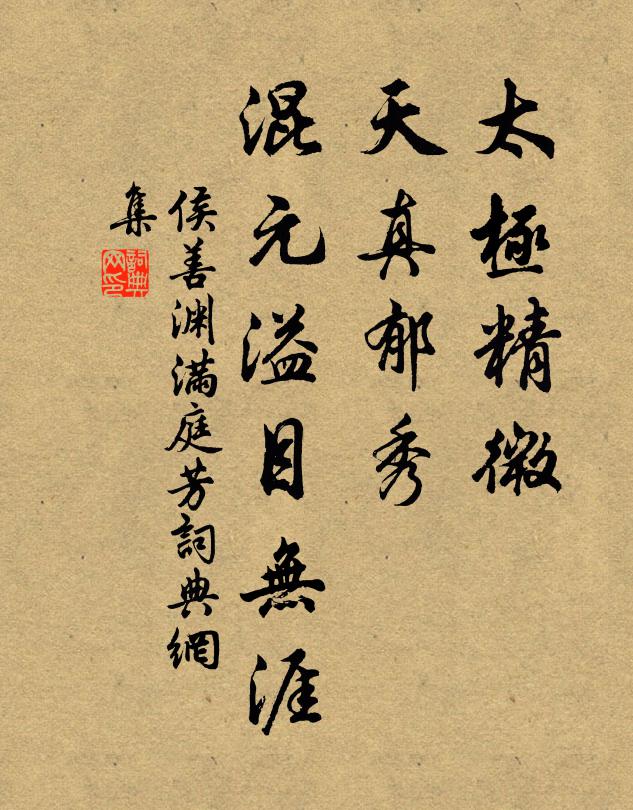 太極精微
天真郁秀
混元溢目無涯
侯善渊滿庭芳詞典網
集
詞典
网印